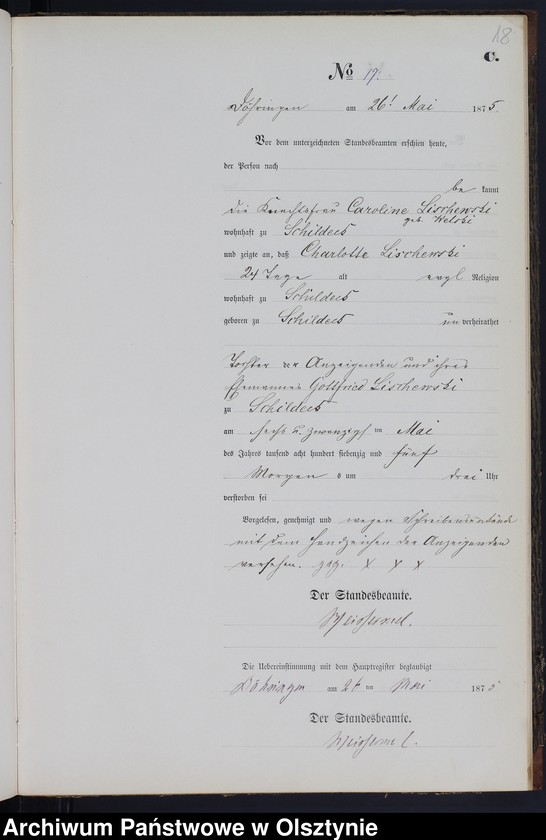 18
C.
No 17.
Döhringen am 26t Mai 1875.
Vor dem unterzeichneten Standesbeamten erschien heute,
der Person nach
be kannt
die Knechtsfrau Caroline Lischewski
geb. Kelski
wohnhaft zu Schildeck
und zeigte an, daß Charlotte Lischewski
24 Tage alt evgl Religion
wohnhaft zu Schildeck
geboren zu Schildeck un verheirathet
Tochter der Anzeigenden und ihres
Ehemannes Gottfried Lischewski
zu Schildeck
am sechs u. zwanzigst en Mai
des Jahres tausend acht hundert siebenzig und fünf
Morgen s um drei Uhr
verstorben sei
Vorgelesen, genehmigt und wegen Schreibensunkunde
mit dem Handzeichen der Anzeigenden
versehen. gez. X X X
Der Standesbeamte.
Die Uebereinstimmung mit dem Hauptregister beglaubigt
Döhringen am 26 ten Mai 1875
Der Standesbeamte.
Archiwum Państwowe w Olsztynie